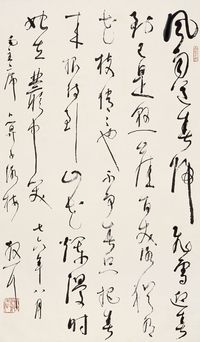 風雨送春歸飛雪迎春
到已是懸崖百丈冰猶有
花枝俏俏也不争春只把春
来報待到山花爛漫时
她在叢中笑 七六年八月
毛主席卜算子咏梅